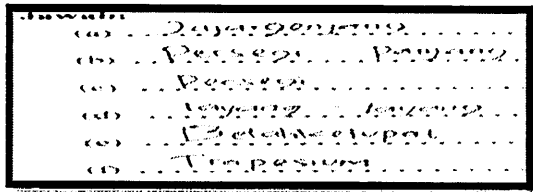 Jawab:
(a) Jajargenjang
(b) Persegi Panjang
(c) Persegi
(d) layang layang
(e) Belahketupat
(f) Trapesium